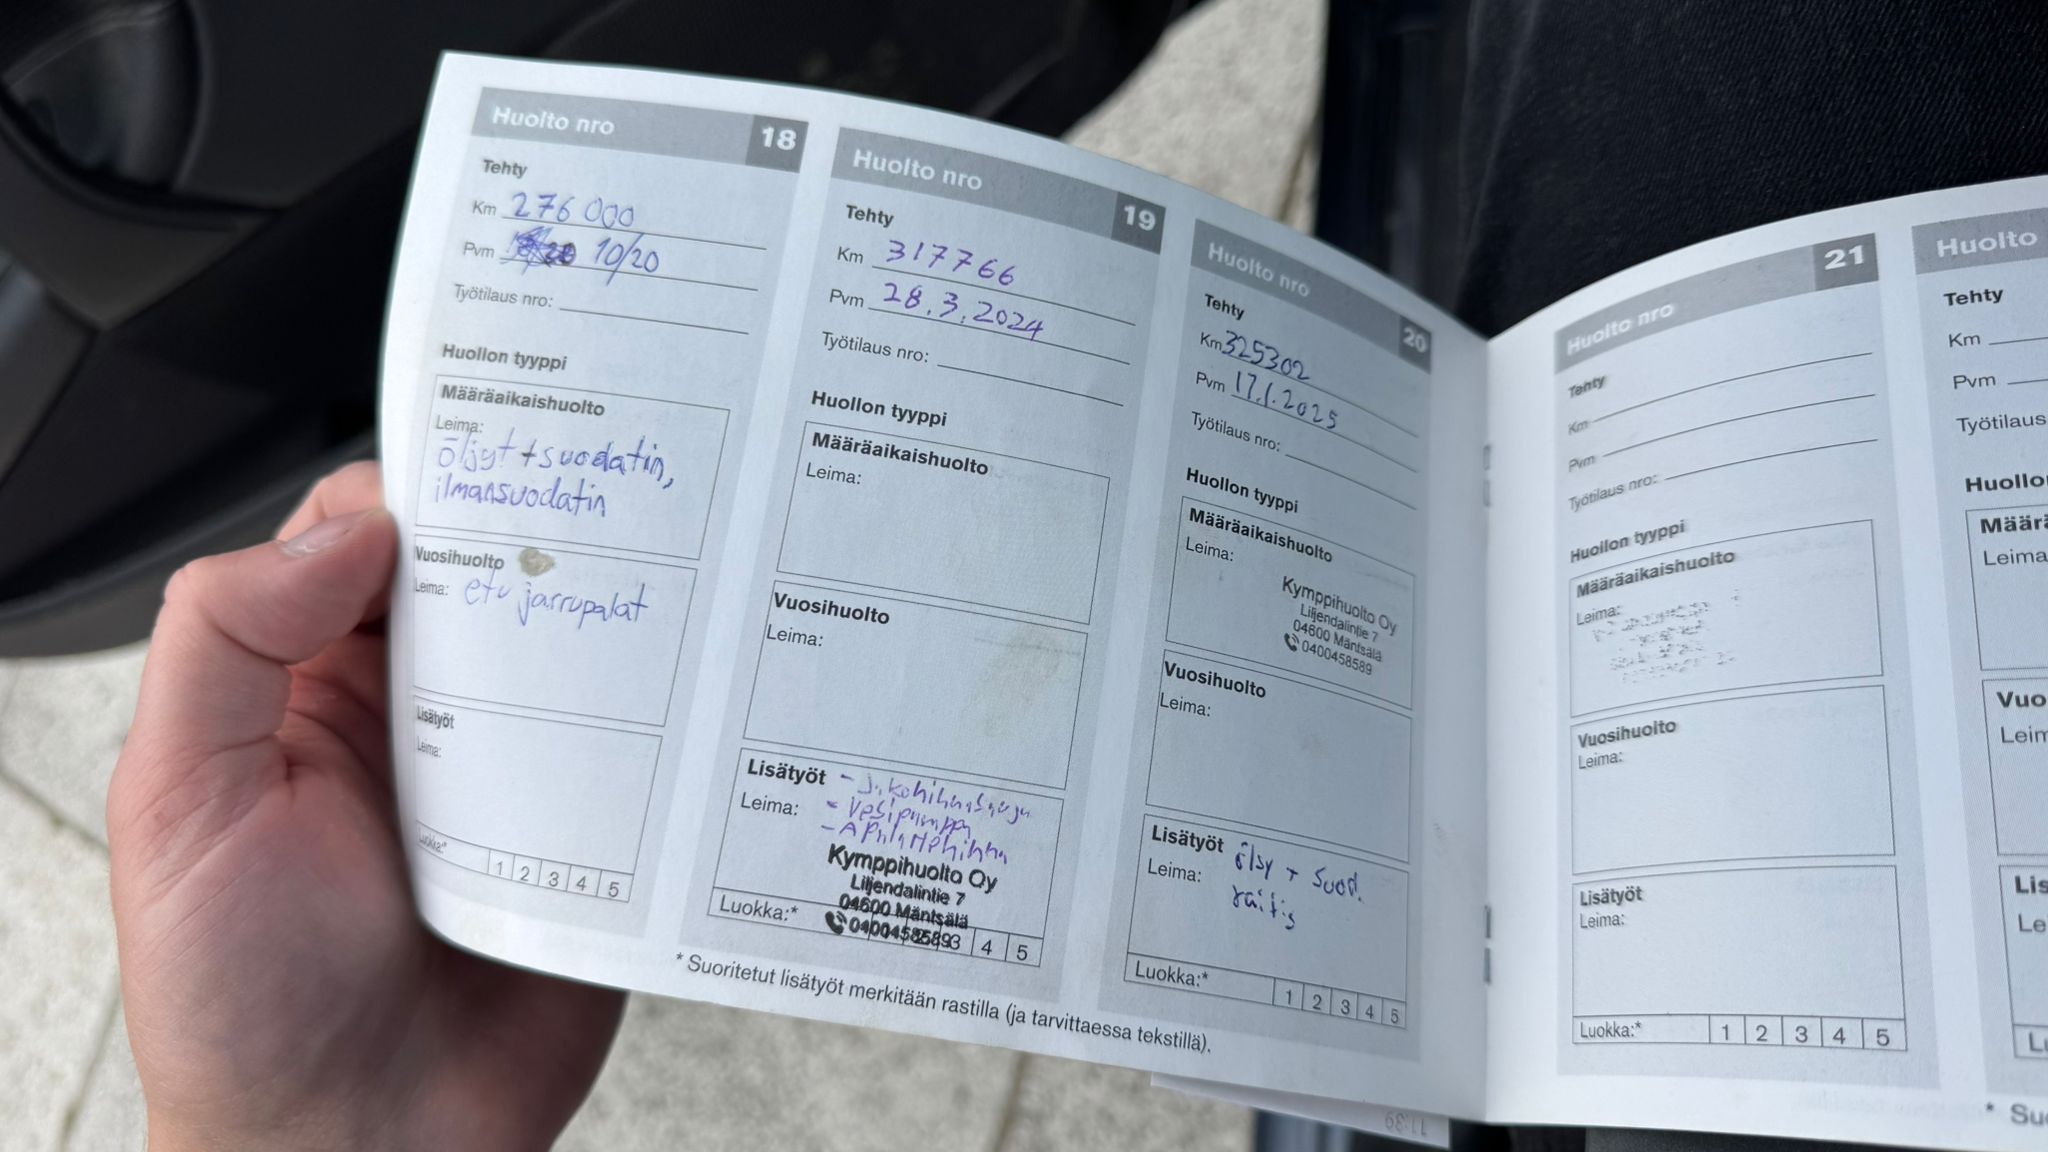 Huolto nro 18
Tehty
Km 276 000
Pvm 10/20
Työtilaus nro:
Huollon tyyppi
Määräaikaishuolto
Leima:
öljyt + suodatin,
ilmansuodatin
Vuosihuolto
Leima: etu jarrupalat
Lisätyöt
Leima:
Luokka:* 1 2 3 4 5
Huolto nro 19
Tehty
Km 317766
Pvm 28.3.2024
Työtilaus nro:
Huollon tyyppi
Määräaikaishuolto
Leima:
Vuosihuolto
Leima:
Lisätyöt - Jakohihnasarja
Leima: - Vesipumppu
- Apulaitehihna
Kymppihuolto Oy
Liljendalintie 7
04600 Mäntsälä
0400458589
Luokka:* 3 4 5
Huolto nro 20
Tehty
Km 325302
Pvm 17.1.2025
Työtilaus nro:
Huollon tyyppi
Määräaikaishuolto
Leima:
Kymppihuolto Oy
Liljendalintie 7
04600 Mäntsälä
0400458589
Vuosihuolto
Leima:
Lisätyöt öljy + suod.
Leima:
Luokka:* 1 2 3 4 5
* Suoritetut lisätyöt merkitään rastilla (ja tarvittaessa tekstillä).
Huolto nro 21
Tehty
Km
Pvm
Työtilaus nro:
Huollon tyyppi
Määräaikaishuolto
Leima:
Vuosihuolto
Leima:
Lisätyöt
Leima:
Luokka:* 1 2 3 4 5
Huolto
Tehty
Km
Pvm
Työtilaus
Huollo
Määrä
Leima
Vuo
Leim
Lis
Le
L
* Suo
11:39